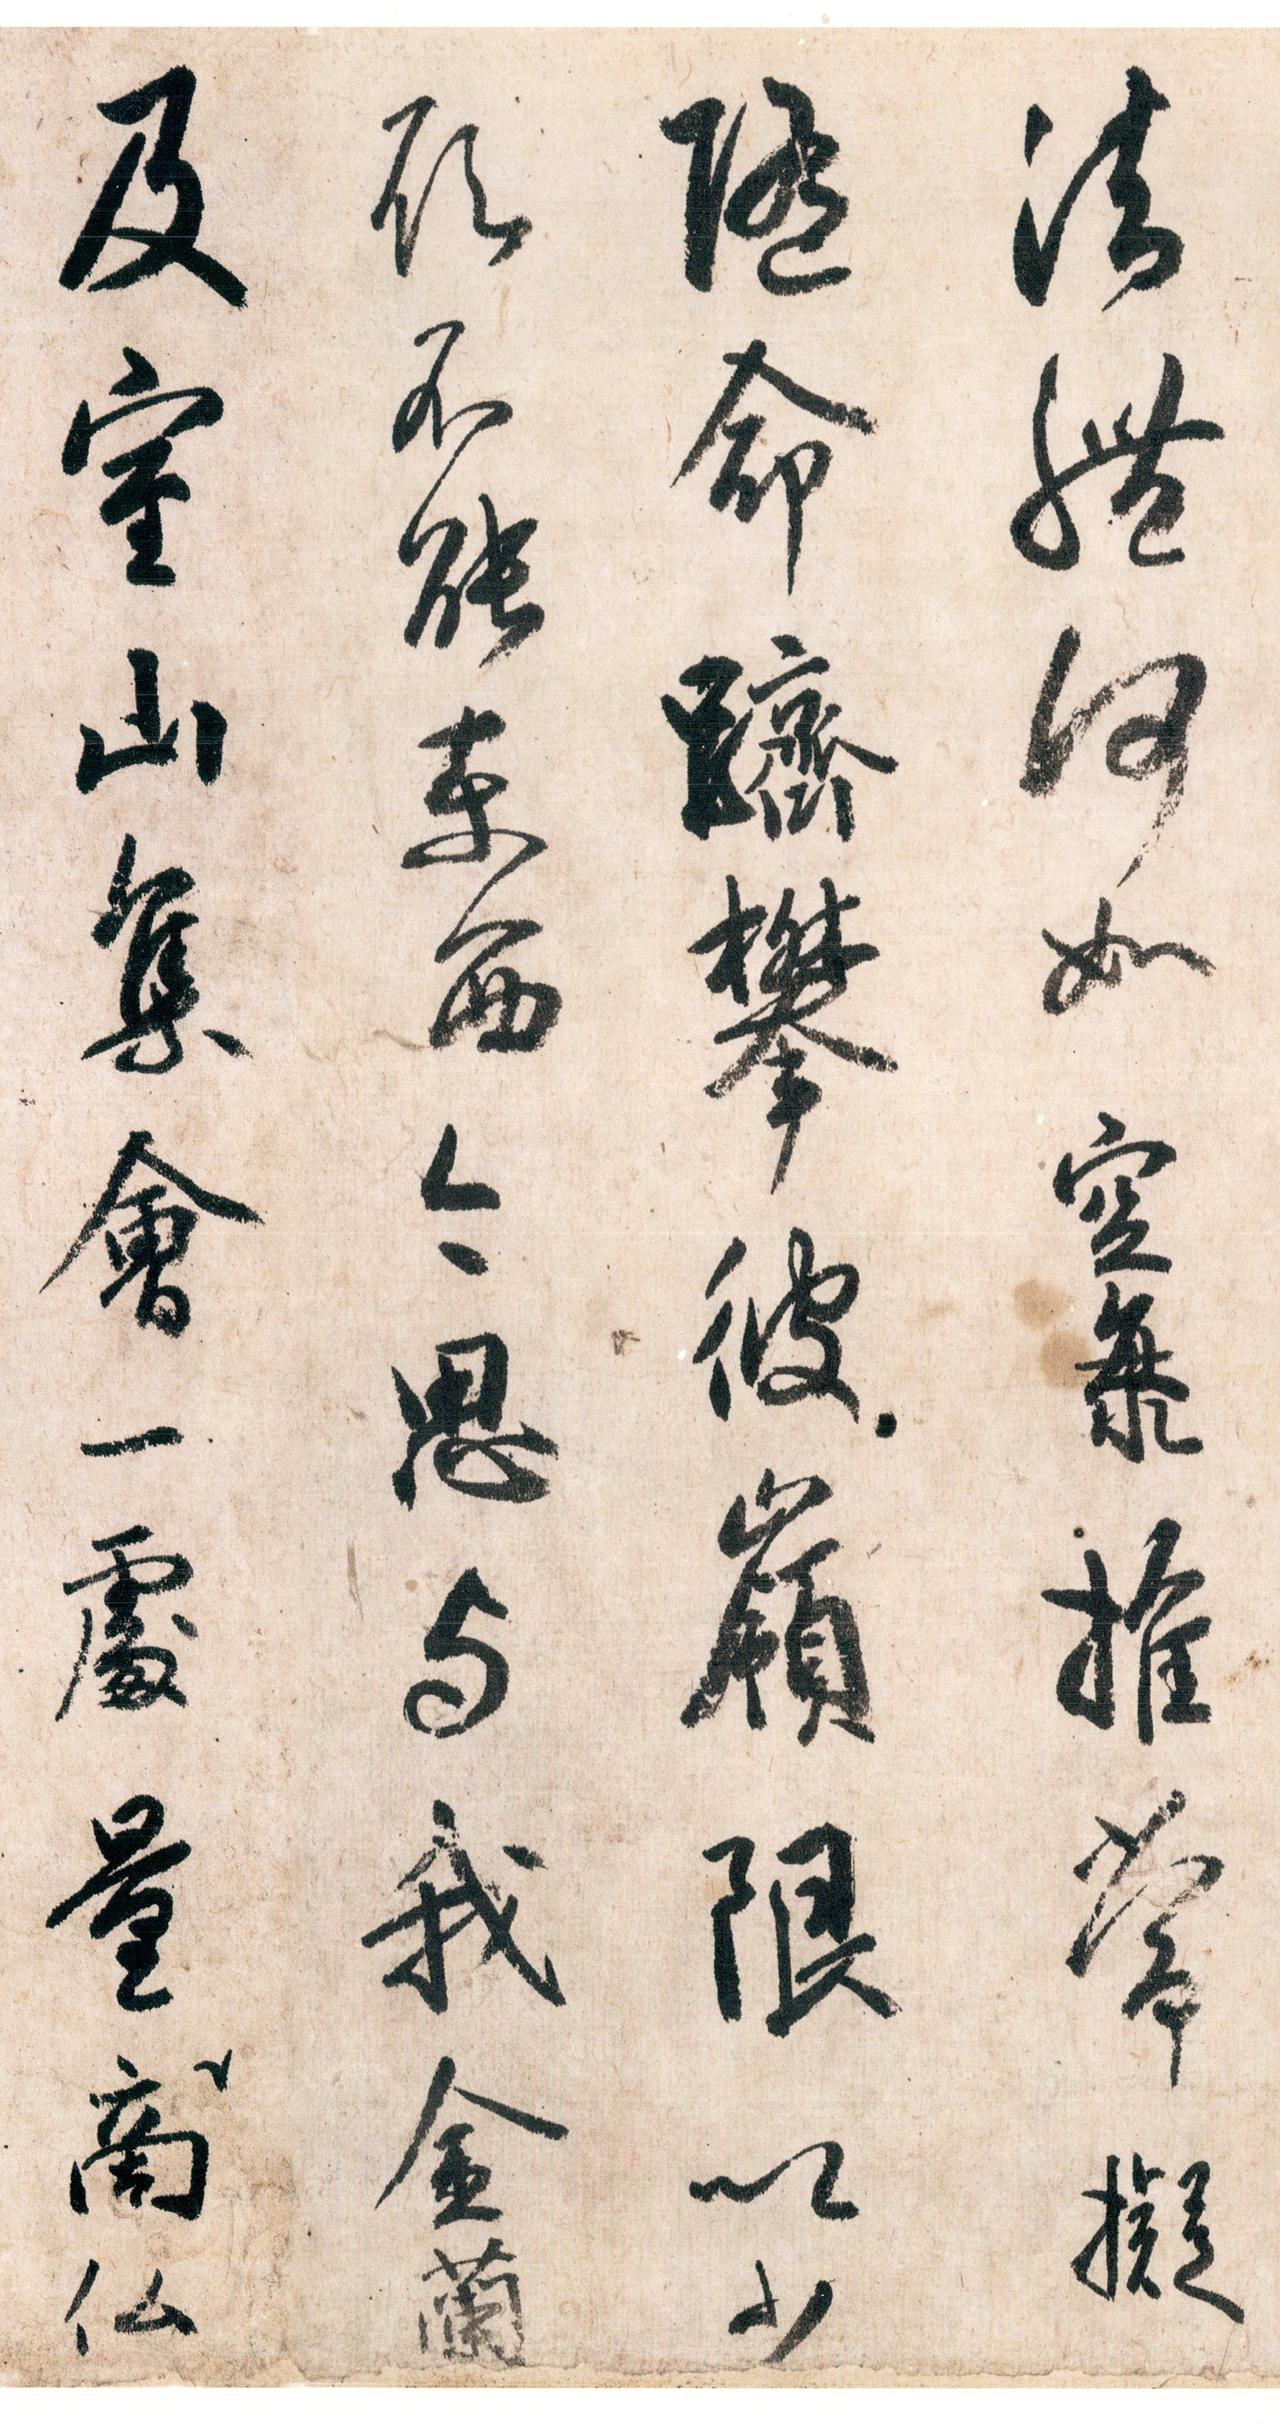 法體何如空海推常擬
隨命躋攀彼嶺限以少
願不能東西今思与我金蘭
及室山集會一處量商仏